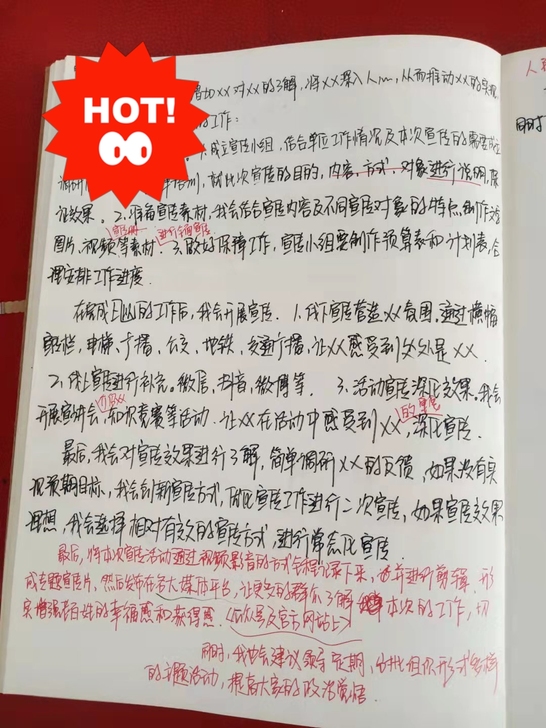 HOT!
增加XX对XX的了解,将XX深入人心,从而推动XX的实现
的工作:
1.成立宣传小组,结合单位工作情况及本次宣传的需要成立
培训,就此次宣传的目的,内容,方式,对象进行说明,保
证效果。2、准备宣传素材,我会结合宣传内容及不同宣传对象的特点,制作
宣传册 进行全面宣传
图片,视频等素材.3.做好保障工作,宣传小组要制作预算表和计划表,合
理安排工作进度.
在完成以上的工作后,我会开展宣传.1.线下宣传营造XX氛围.通过横幅
宣传栏,电梯,广播、公交、地铁、交通广播,让XX感受到处处是XX.
2、线上宣传进行补充。微信,抖音,微博等. 3.活动宣传深化效果.我会
开展宣讲会,知识竞赛等活动.让XX在活动中感受到XX的重要,深化宣传.
最后,我会对宣传效果进行了解,简单调研XX的反馈,如果没有实
现预期目标,我会创新宣传方式,就此宣传工作进行二次宣传,如果宣传效果
理想,我会选择相对有效的宣传方式,进行常态化宣传.
最后,将本次宣传活动通过视频影音的方式全程记录下来,并进行剪辑.形
成专题宣传片,然后发布在各大媒体平台,让更多的群众了解本次的工作,切
实增强老百姓的幸福感和获得感.(公众号及官方网站上)
同时,我也会建议领导定期,分批组织形式多样
的主题活动,提高大家的政治觉悟.
同时